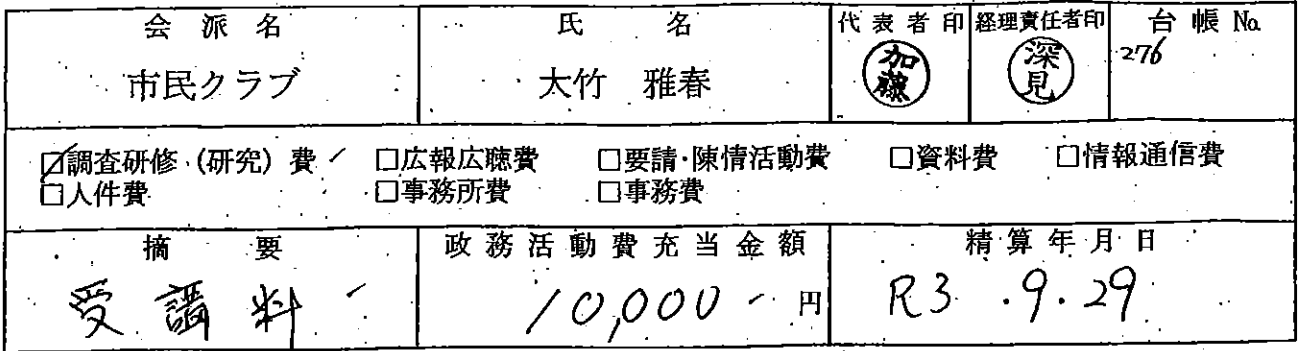 会派名 氏名 代表者印 経理責任者印 台帳No.
市民クラブ 大竹 雅春 加藤 深見 276
☑調査研修(研究)費 □広報広聴費 □要請・陳情活動費 □資料費 □情報通信費
□人件費 □事務所費 □事務費
摘要 政務活動費充当金額 精算年月日
受講料 10,000 円 R3.9.29